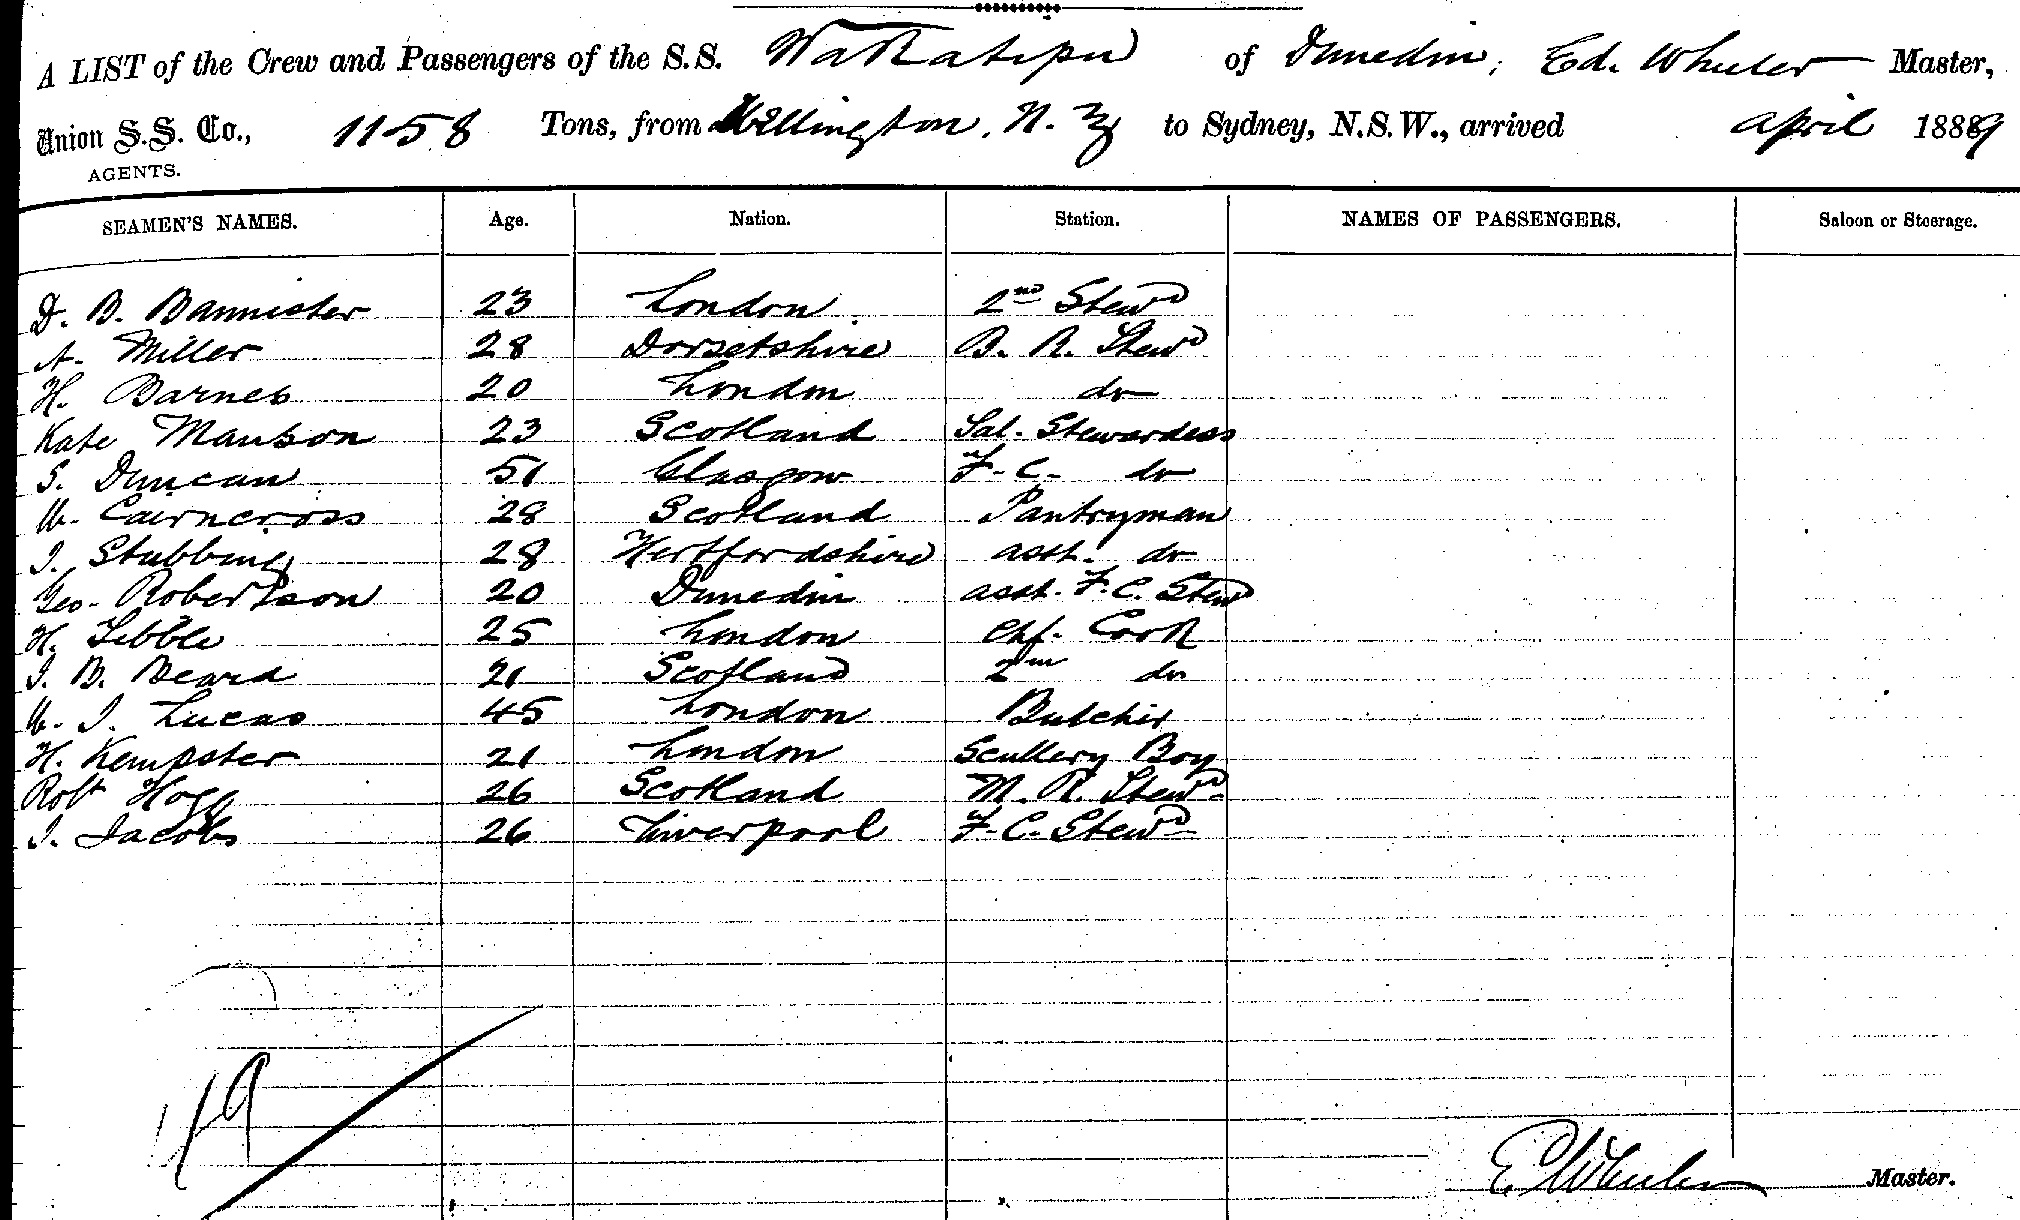 A LIST of the Crew and Passengers of the S.S. Wakatipu of Dunedin, Ed. Wheeler Master,
Union S.S. Co., 1158 Tons, from Wellington, N.Z. to Sydney, N.S.W., arrived April 1889
AGENTS.
SEAMEN'S NAMES. Age. Nation. Station. NAMES OF PASSENGERS. Saloon or Steerage.
D. B. Bannister 23 London 2nd Stewd
A. Miller 28 Dorsetshire B. R. Stewd
H. Barnes 20 London do
Kate Manson 23 Scotland Sal. Stewardess
S. Duncan 51 Glasgow F. C. do
W. Cairncross 28 Scotland Pantryman
J. Stubbing 28 Hertfordshire asst. do
Geo. Robertson 20 Dunedin asst. F. C. Stewd
H. Tebble 25 London Chf. Cook
J. B. Beard 21 Scotland 2nd do
W. J. Lucas 45 London Butcher
H. Kempster 21 London Scullery Boy
Robt Hogg 26 Scotland M. R. Stewd
J. Jacobs 26 Liverpool F. C. Stewd
E Wheeler Master.